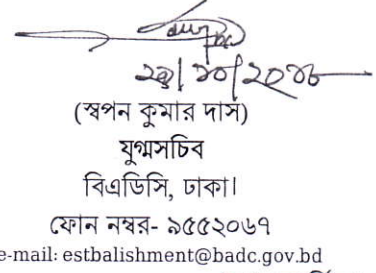 (স্বপন কুমার দাস)
যুগ্মসচিব
বিএডিসি, ঢাকা।
ফোন নম্বর- ৯৫৫২০৬৭
e-mail: estbalishment@badc.gov.bd